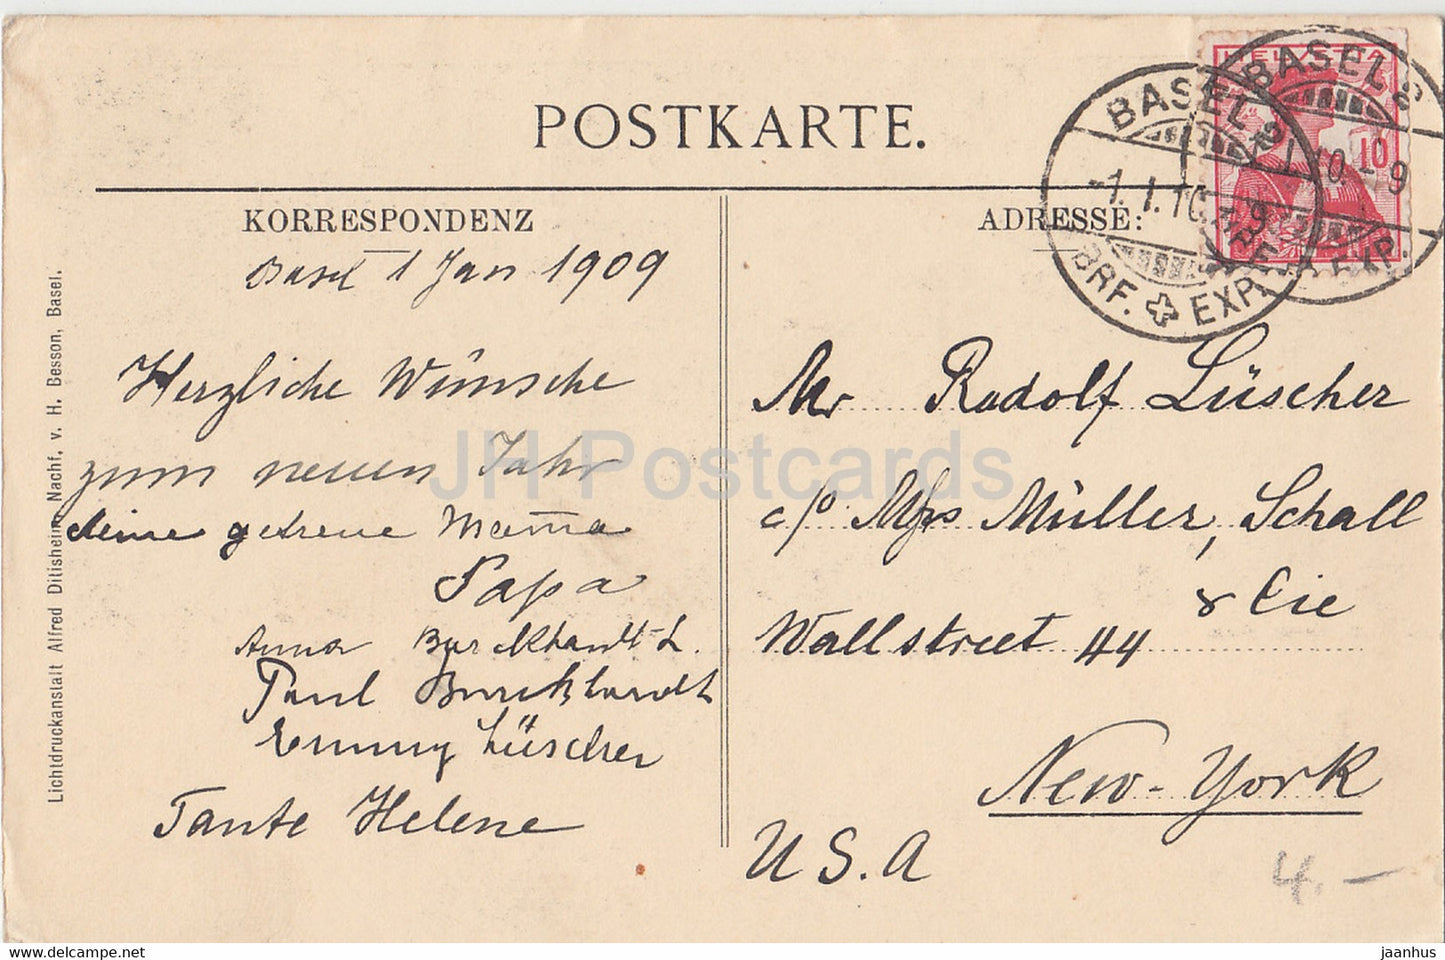 POSTKARTE.
HELVETIA
10
BASEL 2
-1.I.10.-9
BRF. EXP.
BASEL 2
I.10.-9
BRF. EXP.
KORRESPONDENZ
Basel 1 Jan 1909
Herzliche Wünsche
zum neuen Jahr
deine getreue Mama
Papa
Anna Burckhardt-L.
Paul Burckhardt
Emmy Lüscher
Tante Helene
ADRESSE:
Mr Rudolf Lüscher
c/o Müller, Schall
& Cie
Wallstreet 44
New-York
U.S.A
4.-
Lichtdruckanstalt Alfred Ditisheim Nachf. v. H. Besson, Basel.
JH Postcards
www.hippostcard.com
jaanhus